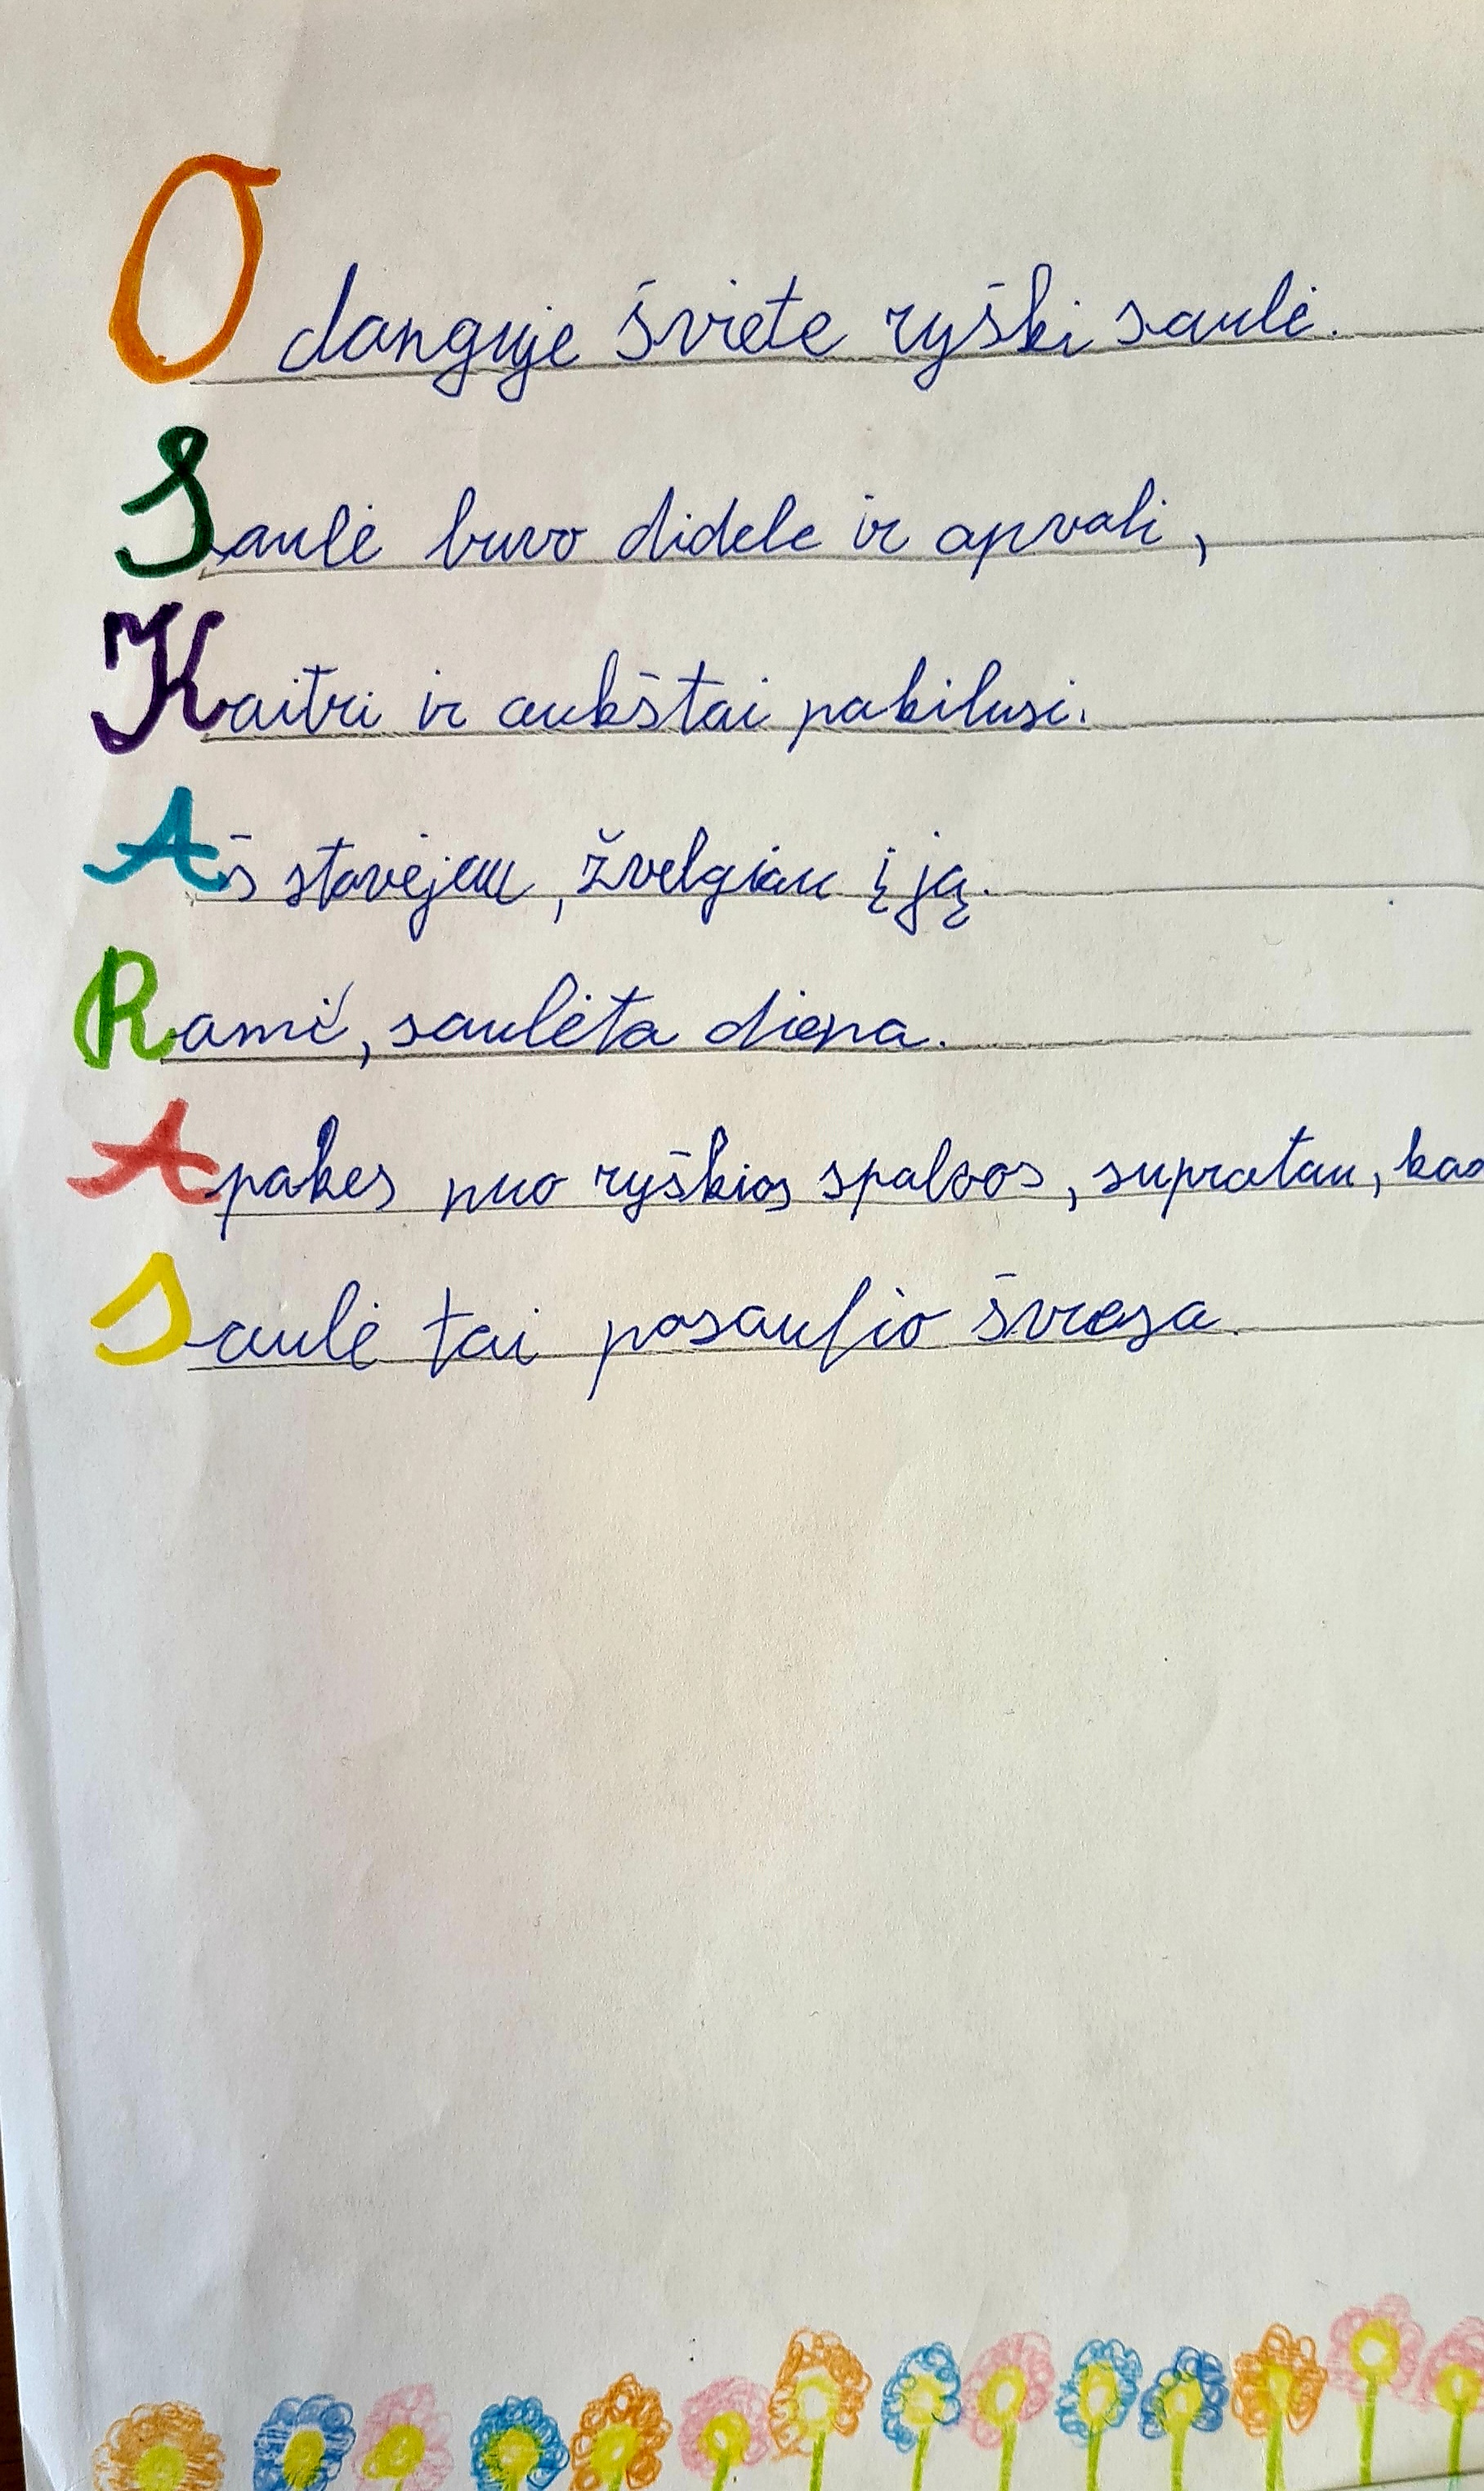 O danguje švietė ryški saulė.
Saulė buvo didelė ir apvali,
Kaitri ir aukštai pakilusi.
Aš stovėjau, žvelgiau į ją.
Rami, saulėta diena.
Apakęs nuo ryškios spalvos, supratau, kad
Saulė tai pasaulio šviesa.